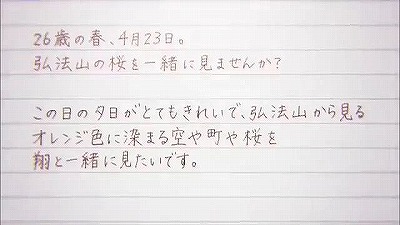 26歳の春、4月23日。
弘法山の桜を一緒に見ませんか?
この日の夕日がとてもきれいで、弘法山から見る
オレンジ色に染まる空や町や桜を
翔と一緒に見たいです。